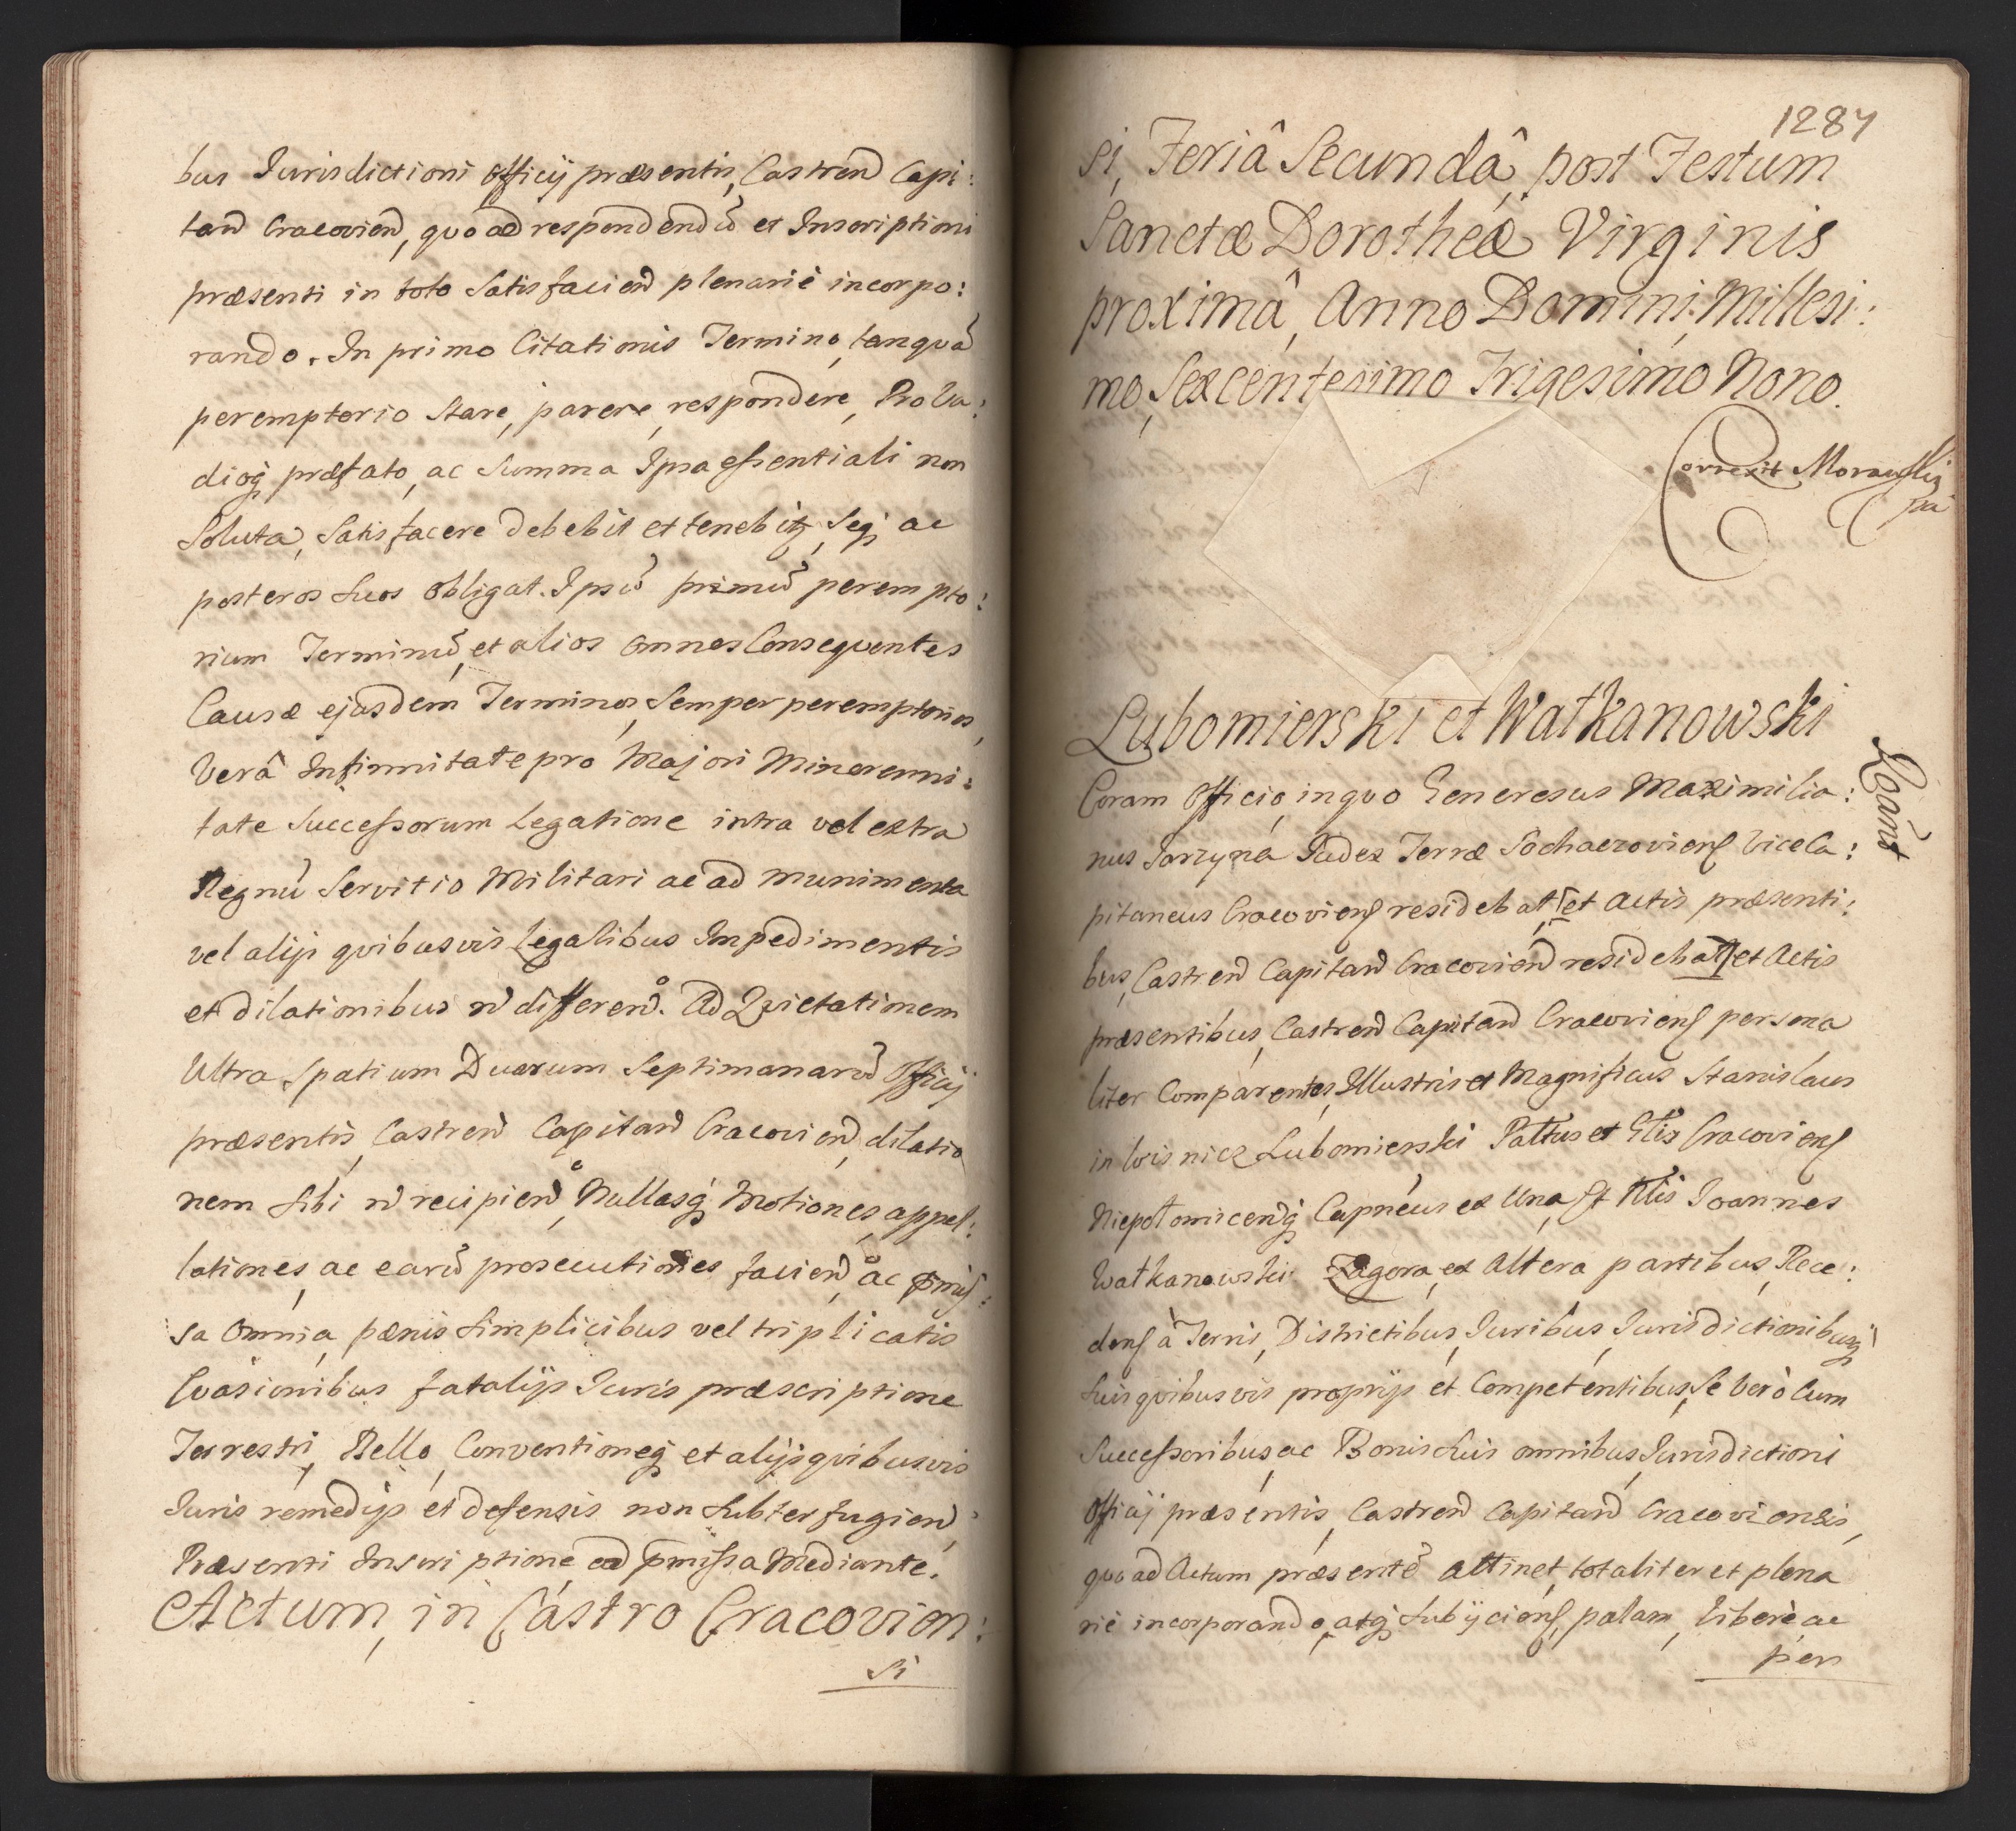 bus Jurisdictioni Officij præsentis, Castren Capi:
tan Cracovien, quo ad respondendũ et Inscriptioni
præsenti in toto Satisfacien plenariè incorpo:
rando. In primo Citationis Termino, tanquã
peremptorio Stare, parere, respondere,
dioq præfato, ac Summa Ipsa essentiali non
Soluta, Satisfacere debebit et tenebitz, Seq ac
posteros Suos Obligat. Ipsũ primũ perempto:
rium Terminũ, et alios omnes Consequentes
Causæ ejusdem Terminos, Semper peremptorios,
Verâ Infirmitate pro Majori Minorenni:
tate Successorum Legatione intra vel extra
Regnũ Servitio Militari ac ad munimenta
vel alijs quibusvis Legalibus Impedimentis
et dilationibus n differen. Ad Quietationem
Ultra Spatium Duarum Septimanarũ Officij
præsentis, Castren Capitan Cracovien, dilatio
nem Sibi n recipien, Nullasq Motiones, appel:
lationes, ac earũ prosecutiones facien, ac pmis:
sa Omnia, pænis Simplicibus vel triplicatis
Evasionibus fatalijs Juris præscriptione
Terrestri, Bello, Conventioneq et alijs quibusvis
Juris remedijs et defensis non Subterfugien,
Præsenti Inscriptione ad pmissa Mediante.
Actum, in Castro Cracovien:
si
1287
si, Feriâ Secundâ, post Festum
Sanctæ Dorotheæ Virginis
proximâ, Anno Domini, Millesi:
mo, Sexcentesimo Trigesimo Nono.
Correxit Morawski
Lubomierski et Watkanowski
Roänt
Coram Officio, in quo Generosus Maximilia:
nus Jarzyna Judex Terræ Sochaczoviens Vice Ca:
pitaneus Cracoviens residebat et Actis præsenti:
bus, Castren Capitan Cracovien residebat et Actis
præsentibus, Castren Capitan Cracoviens persona
liter Comparentes, Illustris et Magnificus Stanislaus
in Wisnicz Lubomierski Palttus et Glis Cracoviens
Niepołomicenq Capneus ex Una, et Nlis Joannes
Watkanowski Zagora, ex Altera partibus, Rece:
dens à Terris, Districtibus, Juribus, Jurisdictionibusq
Suis quibusvis proprijs et Competentibus, Se verò Cum
Successoribus, ac Bonis Suis omnibus, Jurisdictioni
Officij præsentis, Castren Capitan Cracoviensis,
quo ad Actum præsentẽ attinet, totaliter et plena
riè incorporando, atq Subijciens, palam, liberè ac
per